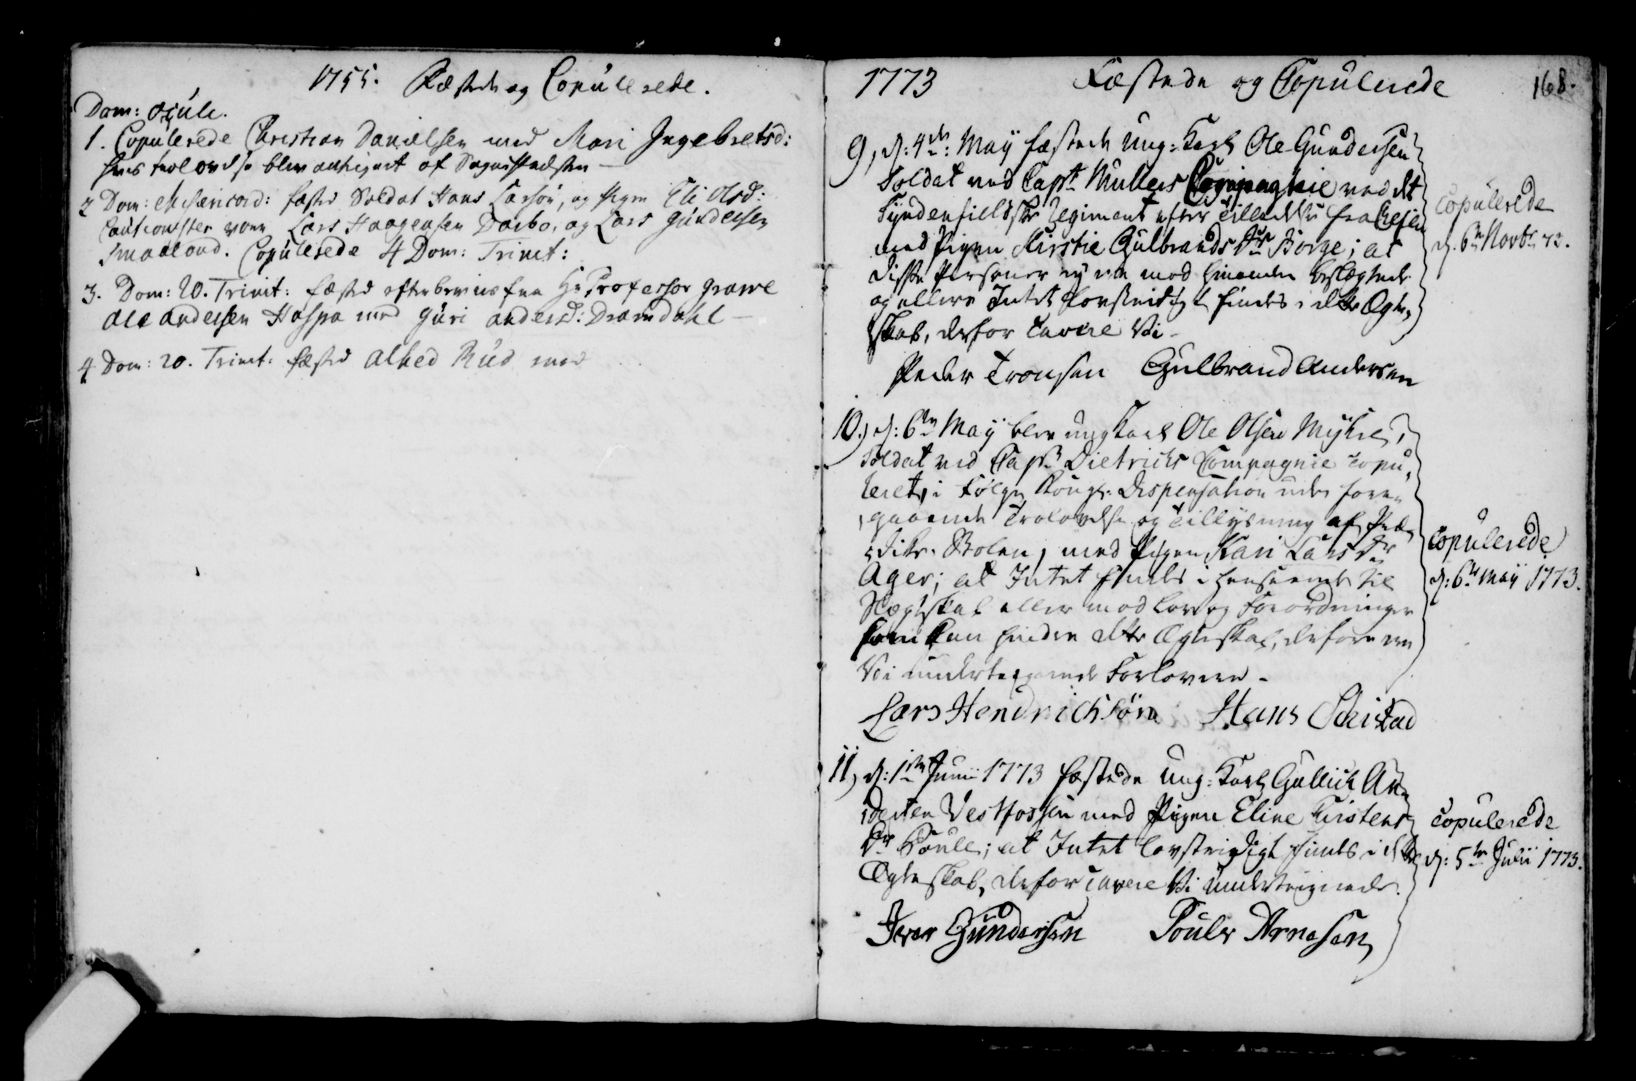 1755. Fæstede og Copulerede.
Dom: Exule.
1. Copulerede Christian Danielsen med Mari Ingebretsd:
hvis trolovelse blev antegnet af
2 Dom: Misericord: fæsted Soldat Hans Larsön, og Pigen Eli Olsd:
Cautionister vare Lars Haagensen Dæhbo, og Lars Gundersen
Smaalond. Copulerede 4 Dom: Trinit:
3. Dom: 20. Trinit: fæsted efter brev fra Hr Professor Grawe
Ole Andersen Haspa med Guri Andersd: Dramdahl —
4 Dom: 20. Trinit: fæsted Alhed Rud med
1773 Fæstede og Copulerede 168.
9, d: 4de: Maij fæstede Ung-Karl Ole Gundersen
Soldat ved Capt Mullers Compagnie ved det
Syndenfieldske Regiment efter Tilladelse fra Chefen
med Pigen Kirstie Gulbrands Dr Borge; at
disse Personer ej ere med hinanden beslægtede
og ellers Intet lovstridigt findes i dette Ægte-
skab, derfor cavere Vi -
Peder Tronsen Gulbrand Andersen
Copulerede
d: 6te Novbr 73.
10.) d: 6te Maij blev ung Karl Ole Olsen Myhre,
Soldat ved Capt Dietrichs Compagnie copu-
leret, i Følge Kongl. Dispensation uden fore-
gaaende Trolovelse og Tillysning af Præ-
dike-Stolen, med Pigen Kari Lars Dr
Ager; at Intet findes i henseende til
Slegtskab eller mod Lov og Forordninger
som kan hindre dette Ægteskab, derfore ere
Vi undertegnede Forlovere -
Lars Hendrichsön Hans Schistad
Copulerede
d: 6te Maij 1773.
11, d: 1ste Junii 1773 fæstede Ung-Karl Gullich An-
dersen Vestfossen med Pigen Eline Kirstens
Dr Houle; at Intet lovstridigt findes i dette
Ægteskab, derfor cavere Vi undertegnede.
Iver Gundersen Poul Arnesen
Copulerede
d: 5te Julii 1773.